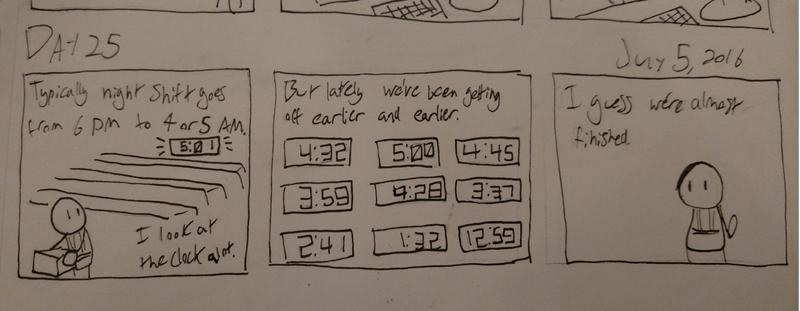 DAY 25
July 5, 2016
Typically night shift goes
from 6 pm to 4 or 5 AM.
5:01
I look at
the clock alot.
But lately we've been getting
off earlier and earlier.
4:32 5:00 4:45
3:59 4:28 3:37
2:41 1:32 12:59
I guess we're almost
finished.